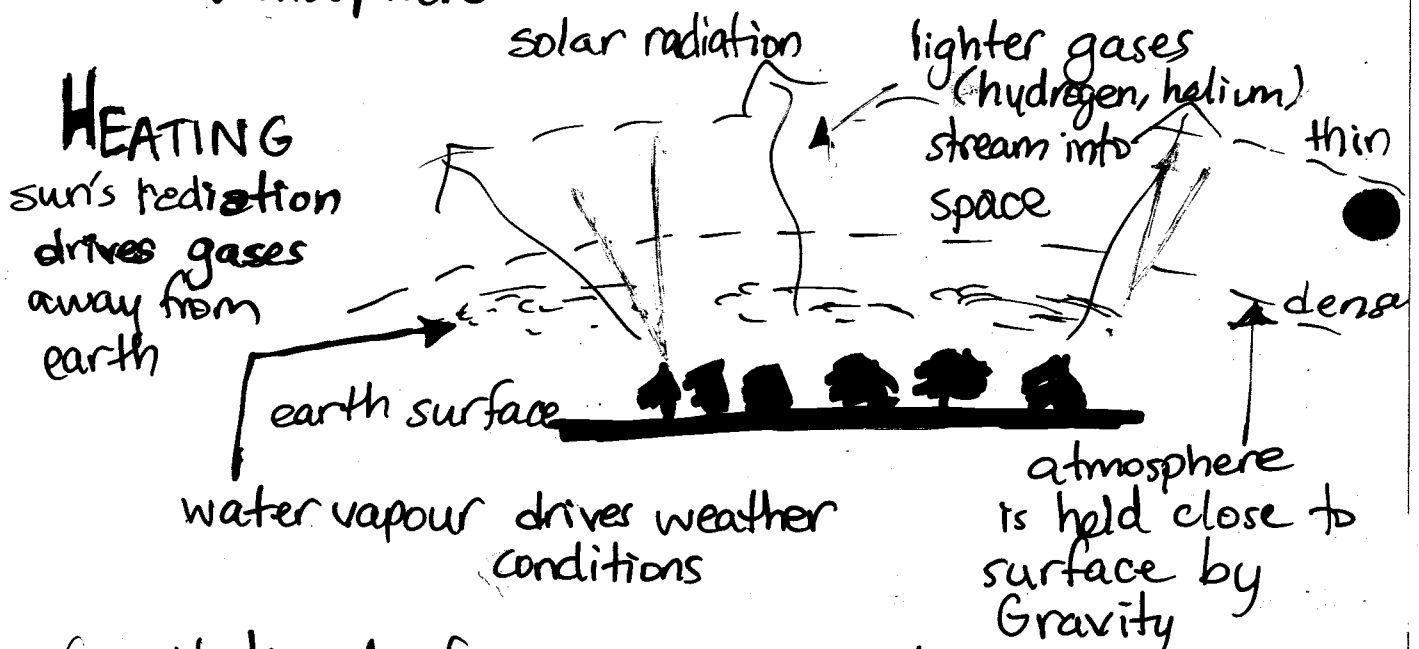 solar radiation
lighter gases
(hydrogen, helium)
stream into
space
thin
HEATING
sun's rediation
drives gases
away from
earth
dense
earth surface
water vapour drives weather
conditions
atmosphere
is held close to
surface by
Gravity